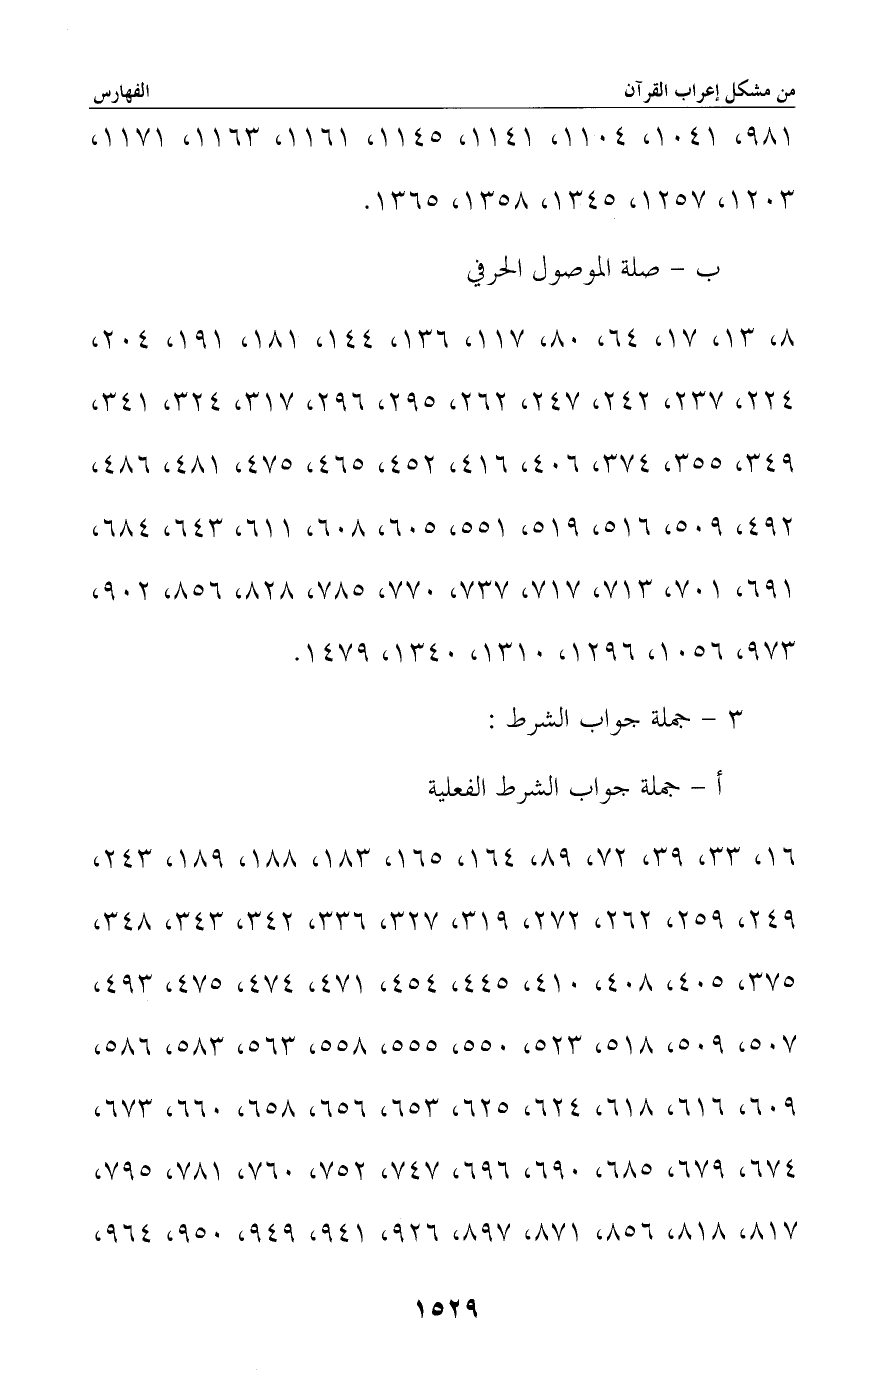 من مشكل إعراب القرآن الفهارس
٩٨١، ١٠٤١، ١١٠٤، ١١٤١، ١١٤٥، ١١٦١، ١١٦٣، ١١٧١،
١٢٠٣، ١٢٥٧، ١٣٤٥، ١٣٥٨، ١٣٦٥.
ب - صلة الموصول الحرفي
٨، ١٣، ١٧، ٦٤، ٨٠، ١١٧، ١٣٦، ١٤٤، ١٨١، ١٩١، ٢٠٤،
٢٢٤، ٢٣٧، ٢٤٢، ٢٤٧، ٢٦٢، ٢٩٥، ٢٩٦، ٣١٧، ٣٢٤، ٣٤١،
٣٤٩، ٣٥٥، ٣٧٤، ٤٠٦، ٤١٦، ٤٥٢، ٤٦٥، ٤٧٥، ٤٨١، ٤٨٦،
٤٩٢، ٥٠٩، ٥١٦، ٥١٩، ٥٥١، ٦٠٥، ٦٠٨، ٦١١، ٦٤٣، ٦٨٤،
٦٩١، ٧٠١، ٧١٣، ٧١٧، ٧٣٧، ٧٧٠، ٧٨٥، ٨٢٨، ٨٥٦، ٩٠٢،
٩٧٣، ١٠٥٦، ١٢٩٦، ١٣١٠، ١٣٤٠، ١٤٧٩.
٣ - جملة جواب الشرط :
أ - جملة جواب الشرط الفعلية
١٦، ٣٣، ٣٩، ٧٢، ٨٩، ١٦٤، ١٦٥، ١٨٣، ١٨٨، ١٨٩، ٢٤٣،
٢٤٩، ٢٥٩، ٢٦٢، ٢٧٢، ٣١٩، ٣٢٧، ٣٣٦، ٣٤٢، ٣٤٣، ٣٤٨،
٣٧٥، ٤٠٥، ٤٠٨، ٤١٠، ٤٤٥، ٤٥٤، ٤٧١، ٤٧٤، ٤٧٥، ٤٩٣،
٥٠٧، ٥٠٩، ٥١٨، ٥٢٣، ٥٥٠، ٥٥٥، ٥٥٨، ٥٦٣، ٥٨٣، ٥٨٦،
٦٠٩، ٦١٦، ٦١٨، ٦٢٤، ٦٢٥، ٦٥٣، ٦٥٦، ٦٥٨، ٦٦٠، ٦٧٣،
٦٧٤، ٦٧٩، ٦٨٥، ٦٩٠، ٦٩٦، ٧٤٧، ٧٥٢، ٧٦٠، ٧٨١، ٧٩٥،
٨١٧، ٨١٨، ٨٥٦، ٨٧١، ٨٩٧، ٩٢٦، ٩٤١، ٩٤٩، ٩٥٠، ٩٦٤،
١٥٢٩